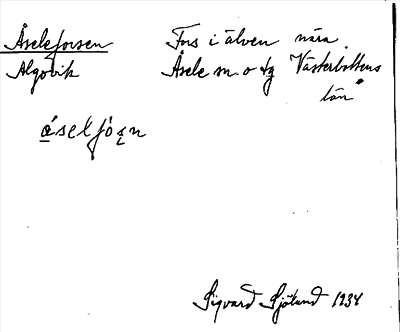 Åseleforsen Fors i älven nära
Algovik Åsele sn. o tg Västerbottens
län
Sigvard Sjölund 1934